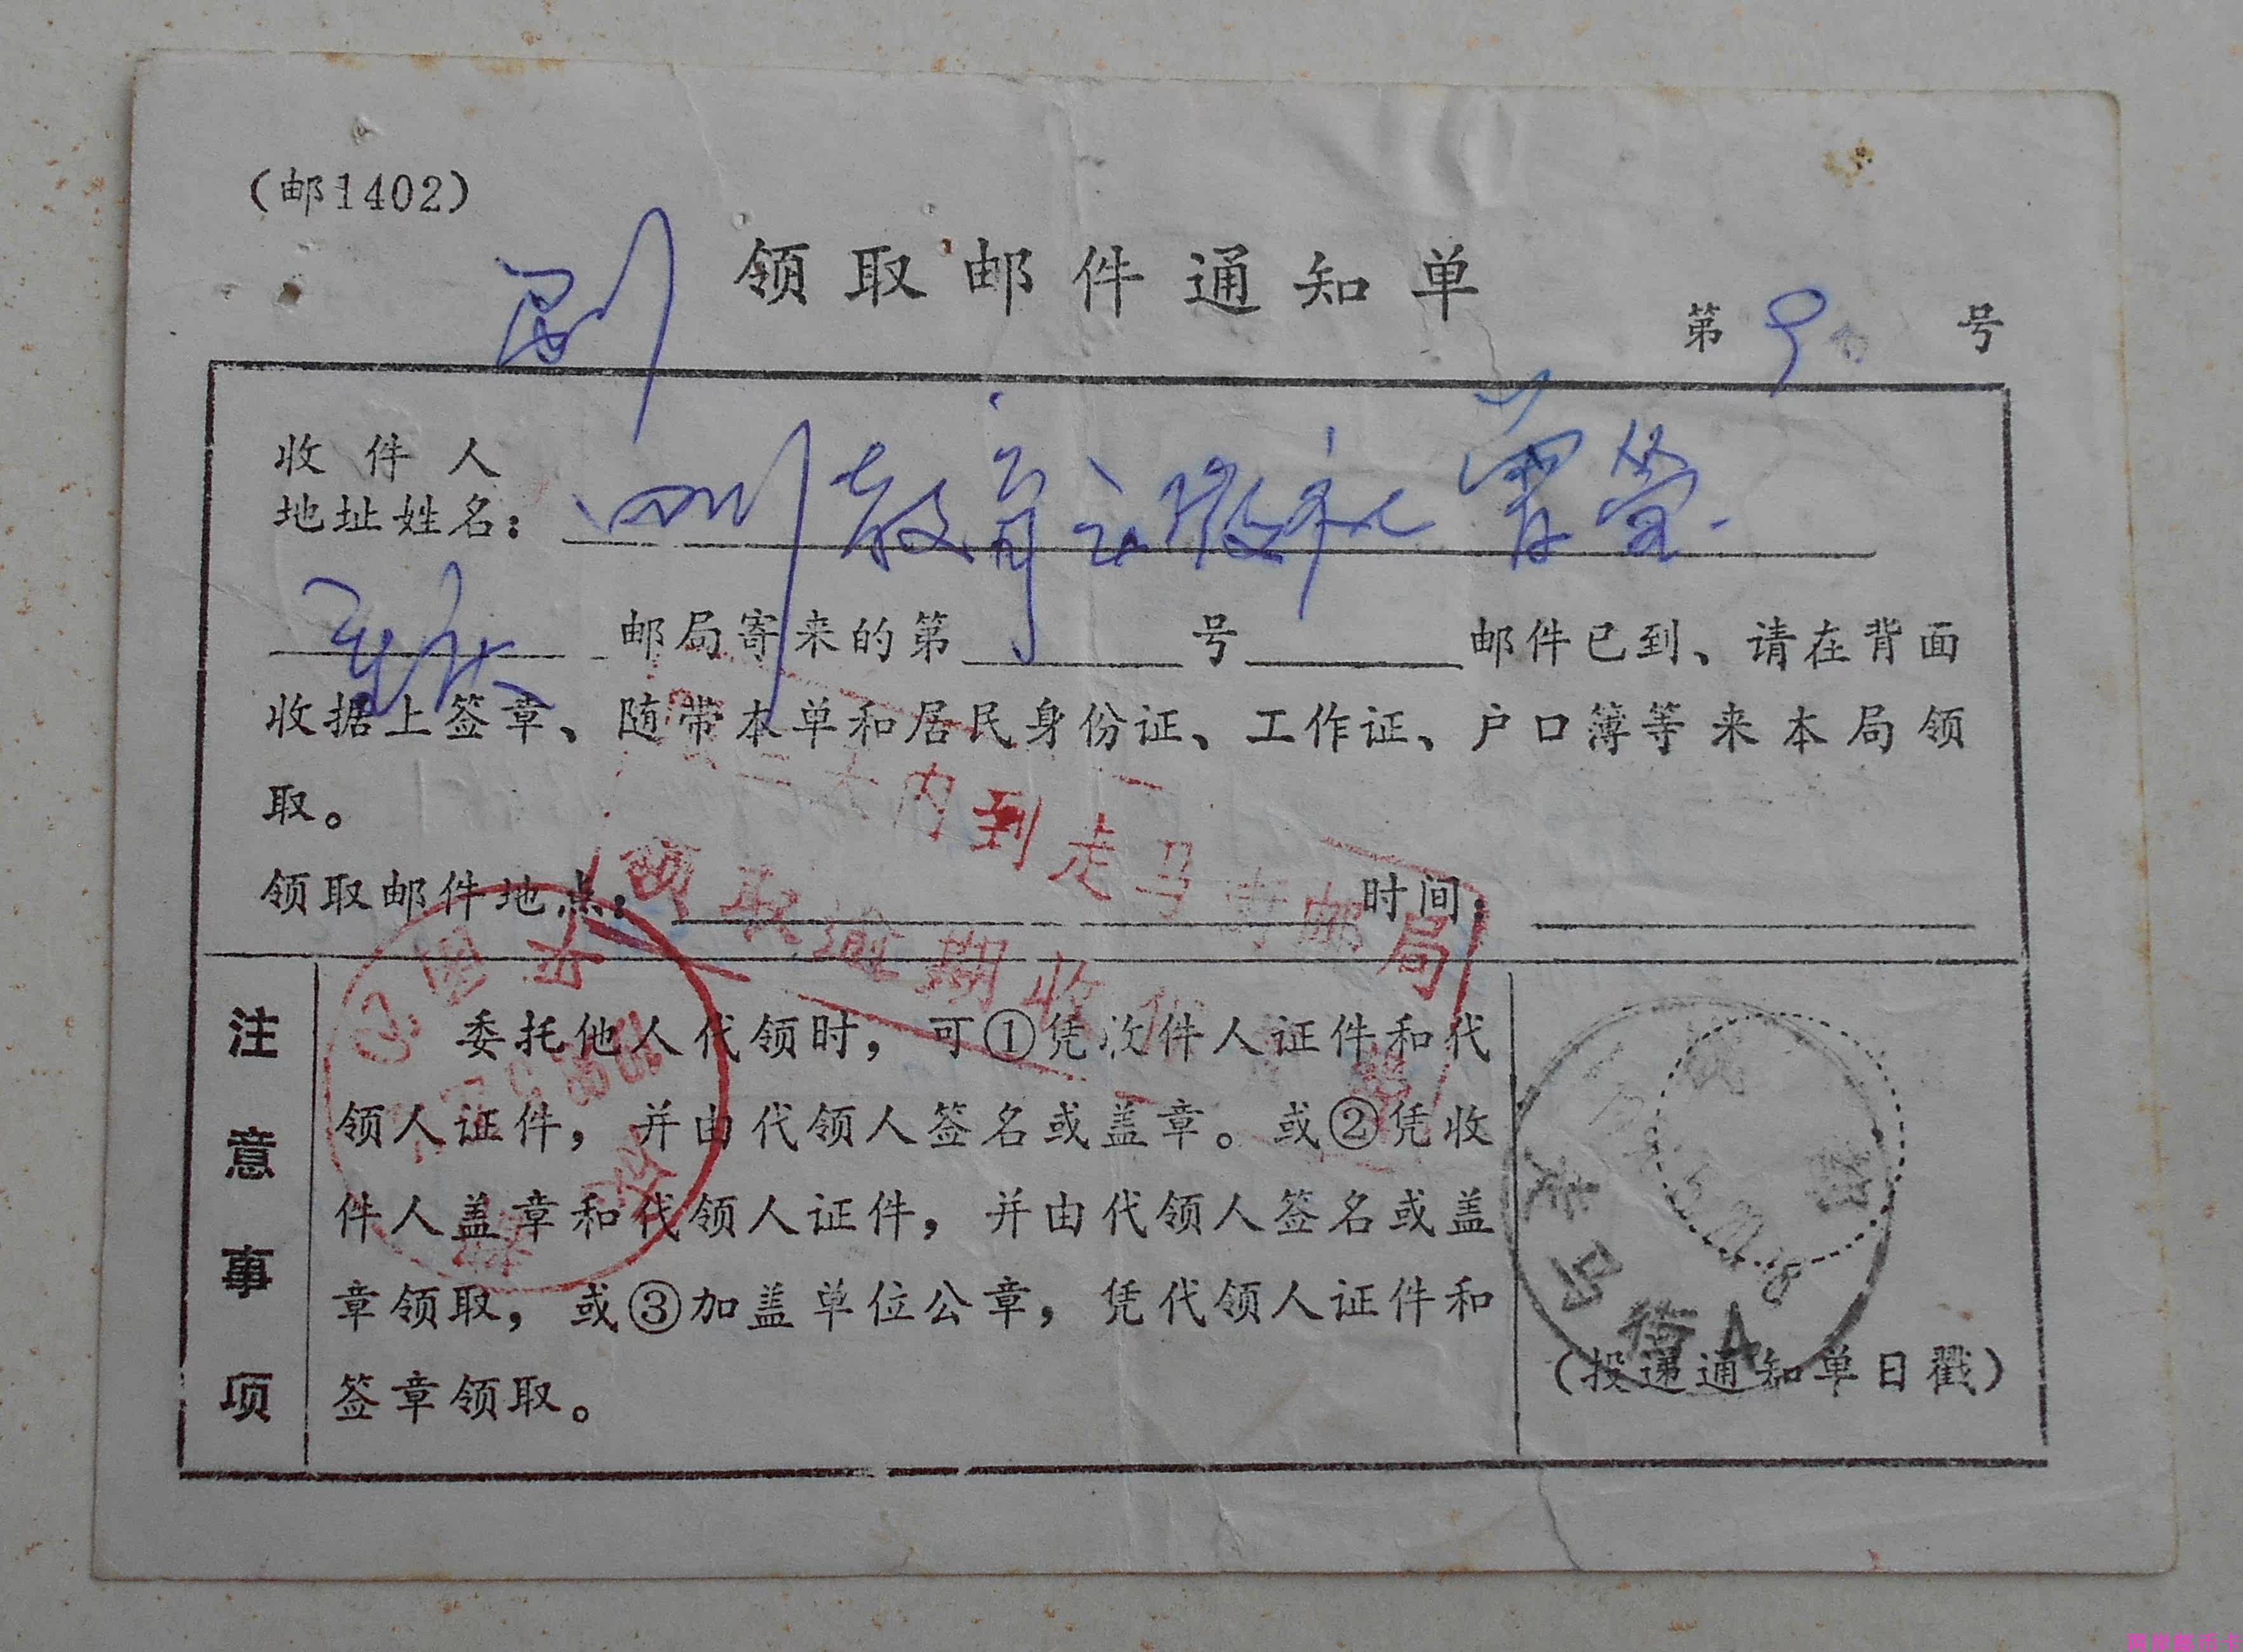 (邮1402)
领取邮件通知单
第 9 号
收件人
地址姓名：四川教育出版社
邮局寄来的第 号 邮件已到、请在背面
收据上签章、随带本单和居民身份证、工作证、户口簿等来本局领
取。
三天内到走马街邮局
领取逾期收
领取邮件地点： 时间：
注意事项
委托他人代领时，可①凭收件人证件和代
领人证件，并由代领人签名或盖章。或②凭收
件人盖章和代领人证件，并由代领人签名或盖
章领取，或③加盖单位公章，凭代领人证件和
签章领取。
走马街
(投递通知单日戳)
两岸邮币卡